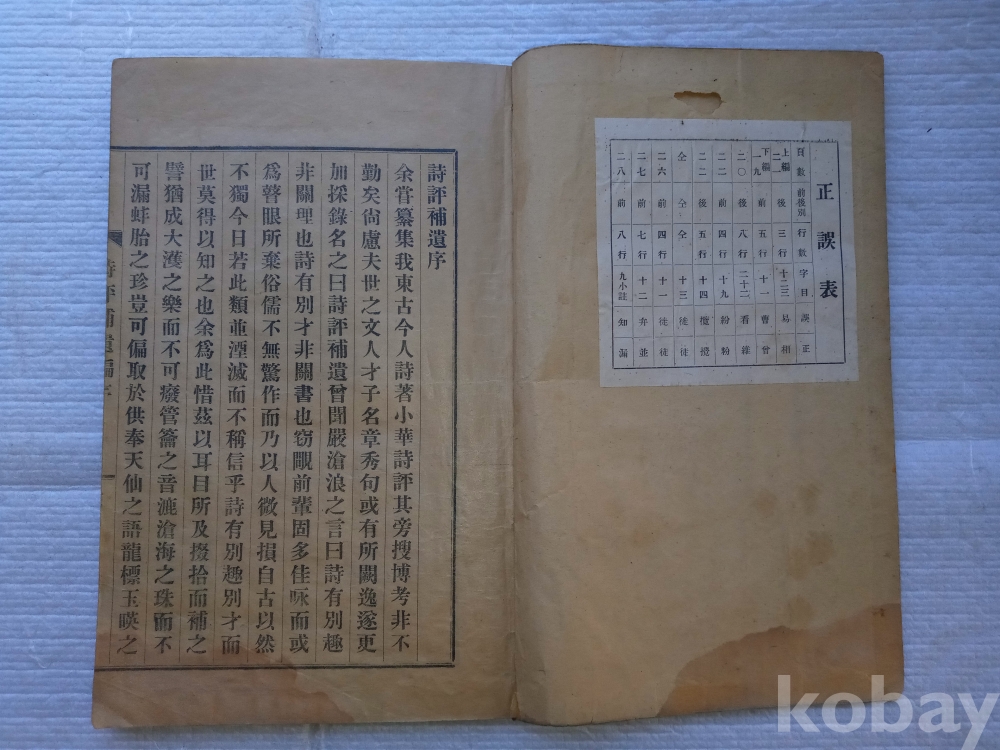 正誤表
頁數 前後別 行數 字目 誤 正
上編 二一 後 三行 十二三 易 相
下編 一九 前 五行 十一 曹 曾
二〇 後 八行 二十二 看 雜
二二 前 四行 十九 紛 粉
二二 後 五行 十四
二六 前 四行 十一 徙 徒
仝 仝 仝 十三 徙 徒
二七 前 七行 十二 弃 並
二八 前 八行 九小註 知 漏
詩評補遺序
余甞纂集我東古今人詩著小華詩評其旁搜博考非不
勤矣尙慮夫世之文人才子名章秀句或有所闕逸遂更
加採錄名之曰詩評補遺曾聞嚴滄浪之言曰詩有別趣
非關理也詩有別才非關書也窃覵前輩固多佳咏而或
爲瞽眼所棄俗儒不無驚作而乃以人微見損自古以然
不獨今日若此類並湮滅而不稱信乎詩有別趣別才而
世莫得以知之也余爲此惜玆以耳目所及掇拾而補之
譬猶成大濩之樂而不可癈管籥之音漉滄海之珠而不
可漏蚌胎之珍豈可偏取於供奉天仙之語龍標玉暎之
詩評補遺編序
kobay